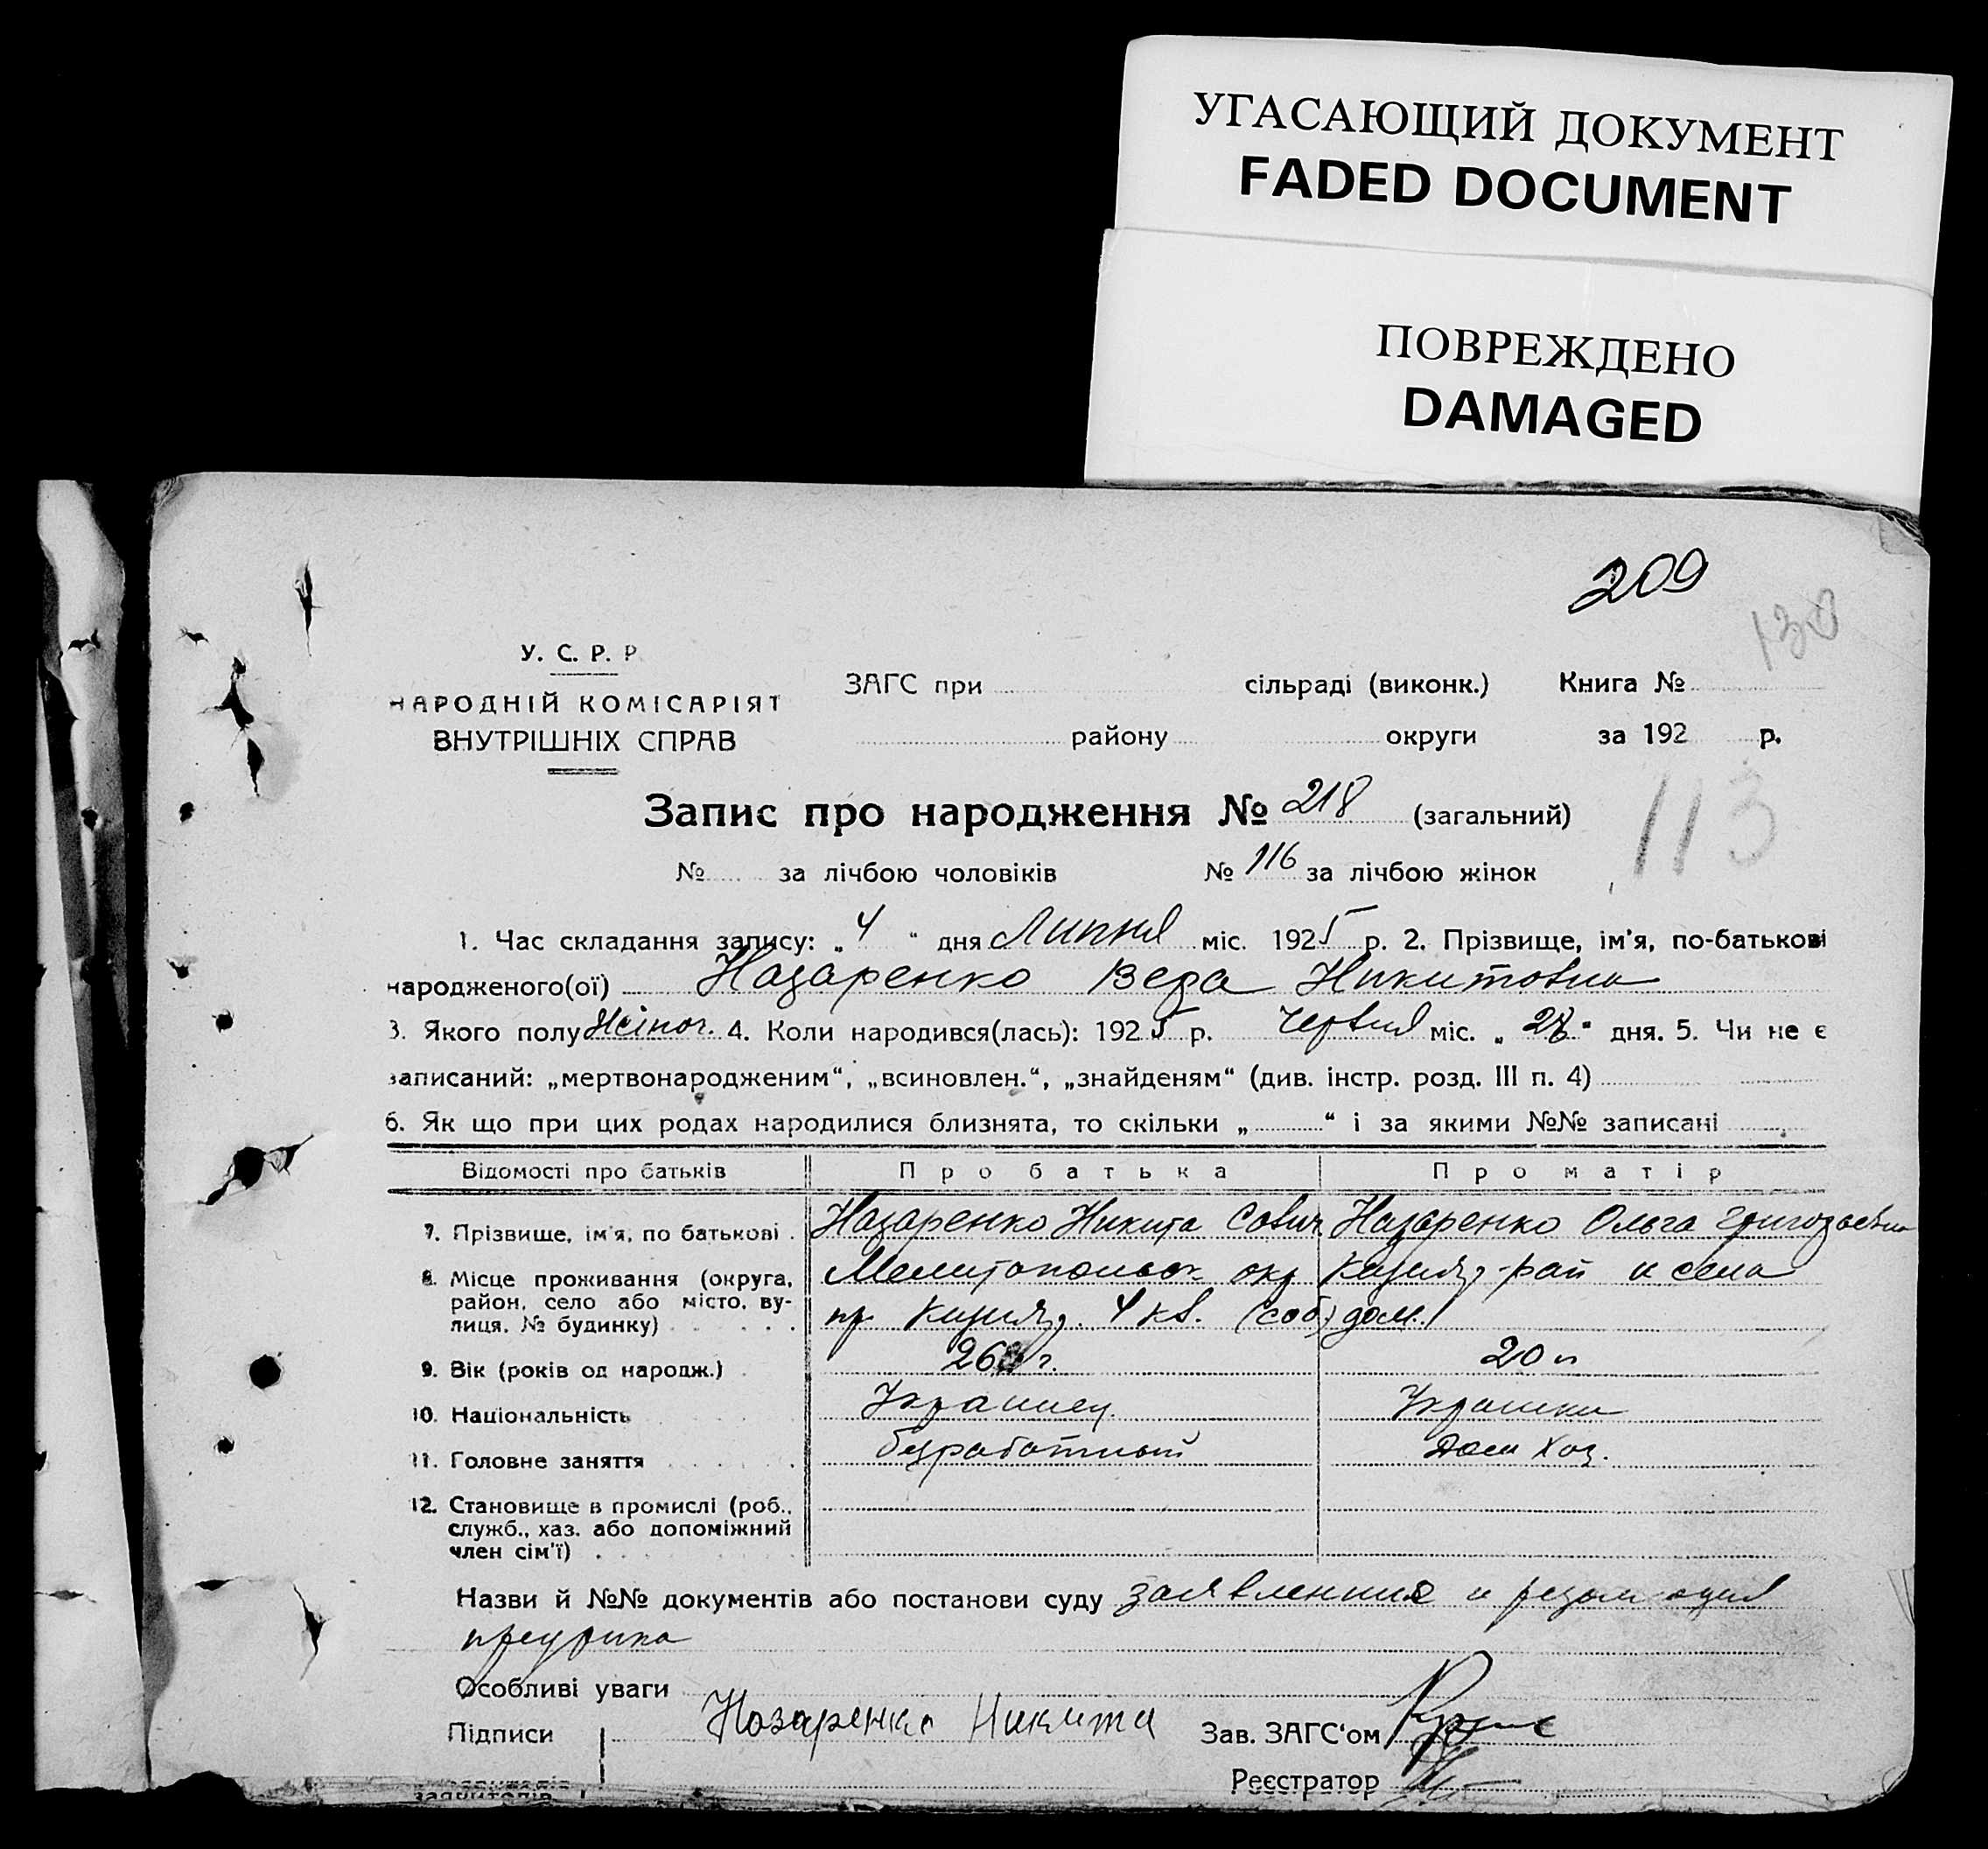 УГАСАЮЩИЙ ДОКУМЕНТ
FADED DOCUMENT
ПОВРЕЖДЕНО
DAMAGED
209
130
У. С. Р. Р
НАРОДНІЙ КОМІСАРІЯТ
ВНУТРІШНІХ СПРАВ
ЗАГС при сільраді (виконк.) Книга №
району округи за 192 р.
113
Запис про народження № 218 (загальний)
№ за лічбою чоловіків № 116 за лічбою жінок
1. Час складання запису: „4“ дня Липня міс. 1925 р. 2. Прізвище, ім'я, по-батькові
народженого(ої) Назаренко Вера Никитовна
3. Якого полу Жіноч. 4. Коли народився(лась): 1925 р. Червня міс. „ “ дня. 5. Чи не є
записаний: „мертвонародженим“, „всиновлен.“, „знайденям“ (див. інстр. розд. III п. 4)
6. Як що при цих родах народилися близнята, то скільки „ “ і за якими №№ записані
Відомості про батьків Про батька Про матір
7. Прізвище, ім'я, по батькові Назаренко Никита Назаренко Ольга Григорьевна
8. Місце проживання (округа, район, село або місто, вулиця, № будинку) Мелитопольск. окр рай и села
4 кв. (соб) дом.
9. Вік (років од народж.) 26 г. 20 л
10. Національність Украинец Украинка
11. Головне заняття безработный Дом Хоз.
12. Становище в промислі (роб.,
служб., хаз. або допоміжний
член сім'ї)
Назви й №№ документів або постанови суду заявление и резолюция
Особливі уваги
Підписи Назаренко Никита Зав. ЗАГС'ом
заявителів Реєстратор